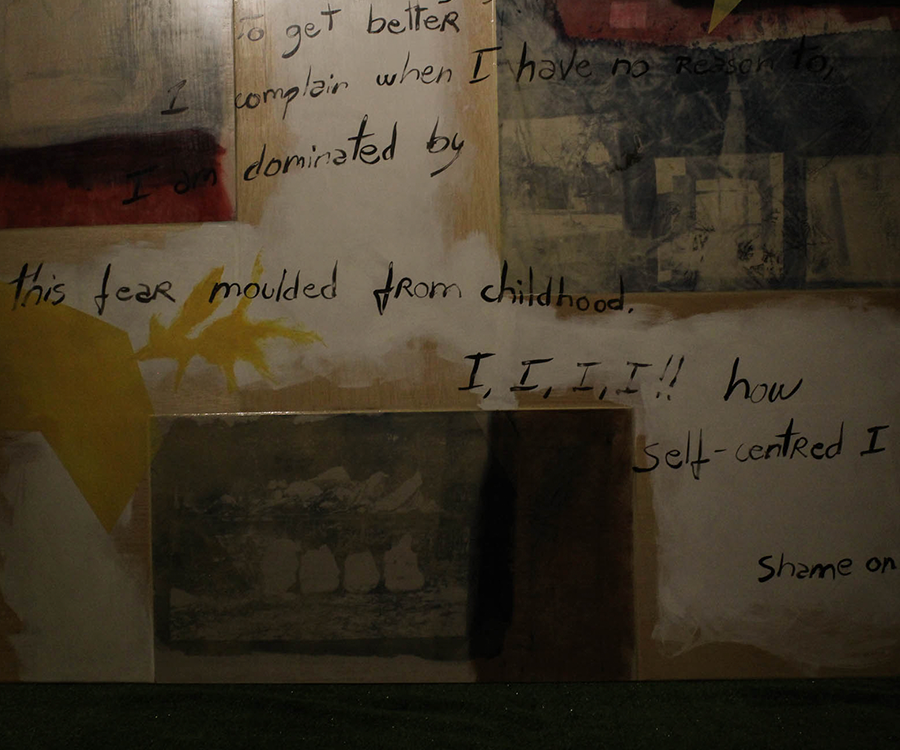 To get better
I complain when I have no reason to,
I am dominated by
this fear moulded from childhood.
I, I, I, I!! how
self-centred I
Shame on